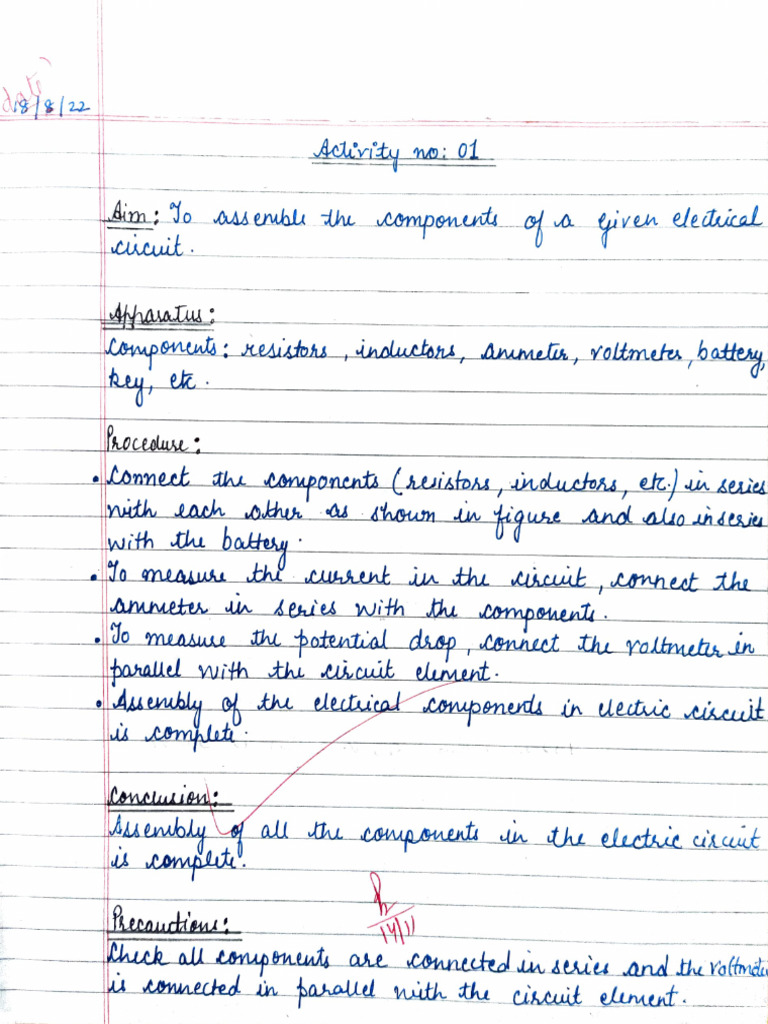 date
18/8/22
Activity no: 01
Aim: To assemble the components of a given electrical
circuit.
Apparatus:
Components: resistors, inductors, ammeter, voltmeter, battery,
key, etc.
Procedure:
• Connect the components (resistors, inductors, etc.) in series
with each other as shown in figure and also in series
with the battery.
• To measure the current in the circuit, connect the
ammeter in series with the components.
• To measure the potential drop, connect the voltmeter in
parallel with the circuit element.
• Assembly of the electrical components in electric circuit
is complete.
Conclusion:
Assembly of all the components in the electric circuit
is complete.
14/11
Precautions:
Check all components are connected in series and the voltmete
is connected in parallel with the circuit element.